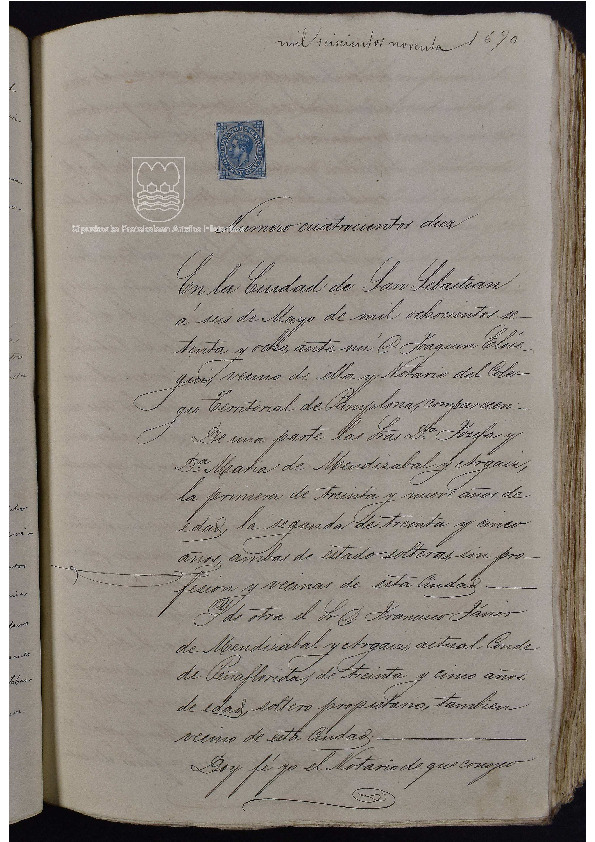 mil seiscientos noventa 1690
Número cuatrocientos diez
En la Ciudad de San Sebastian
a seis de Mayo de mil ochocientos se-
tenta y ocho, ante mi D. Joaquin Elóse-
gui, vecino de ella y Notario del Cole-
gio Territorial de Pamplona, comparecen
De una parte las Sras. Dª. Josefa y
Dª. Maria de Mendizabal y Argaiz,
la primera de treinta y nueve años de
edad, la segunda de treinta y cinco
años, ambas de estado solteras, sin pro-
fesion y vecinas de esta Ciudad
Y de otra el Sr. D. Francisco Javier
de Mendizabal y Argaiz, actual Conde
de Peñaflorida, de treinta y cinco años
de edad, soltero propietario, tambien
vecino de esta Ciudad,
Doy fé yo el Notario de que conozco